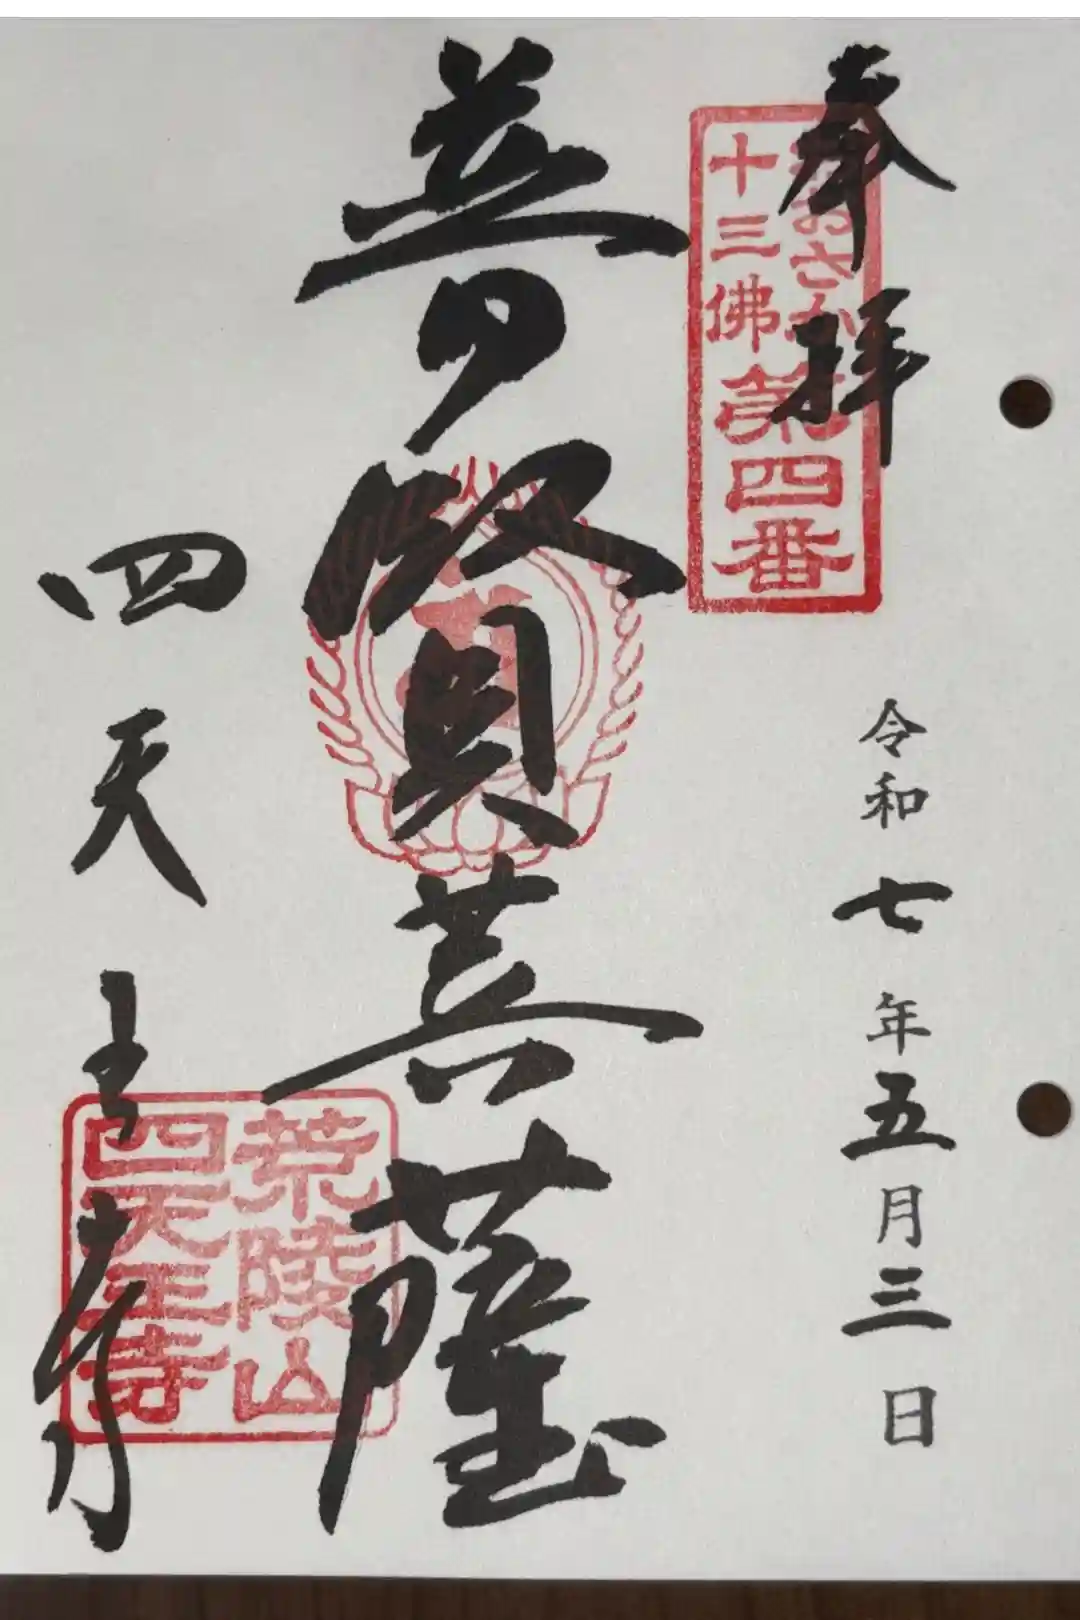 奉拝
おさか
十三佛
第四番
令和七年五月三日
普賢菩薩
荒陵山
四天王寺
四天王寺